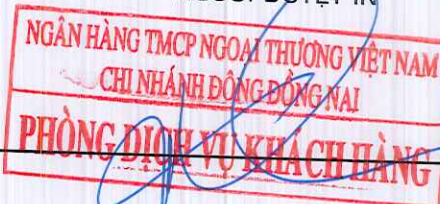 DUYỆT IN
NGÂN HÀNG TMCP NGOẠI THƯƠNG VIỆT NAM
CHI NHÁNH ĐÔNG ĐỒNG NAI
PHÒNG DỊCH VỤ KHÁCH HÀNG